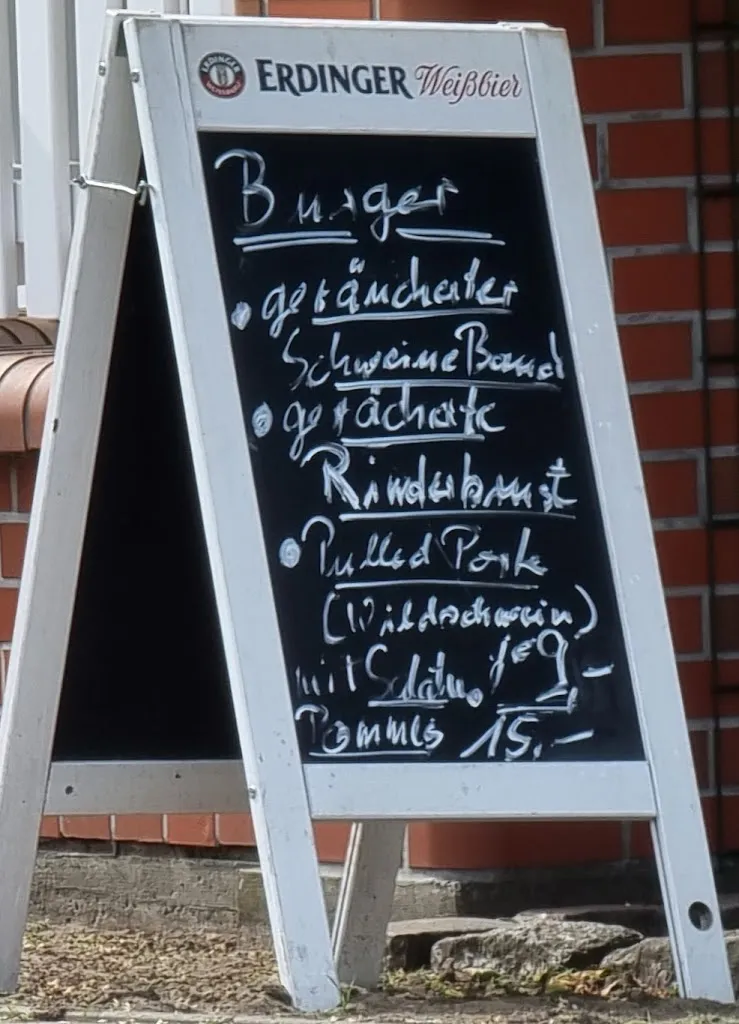 ERDINGER Weißbier
Burger
• geräucherter
Schweine Bauch
• geräucherte
Rinderbrust
• Pulled Pork
(Wildschwein)
mit Salat u. je 9,-
Pommes 15.-